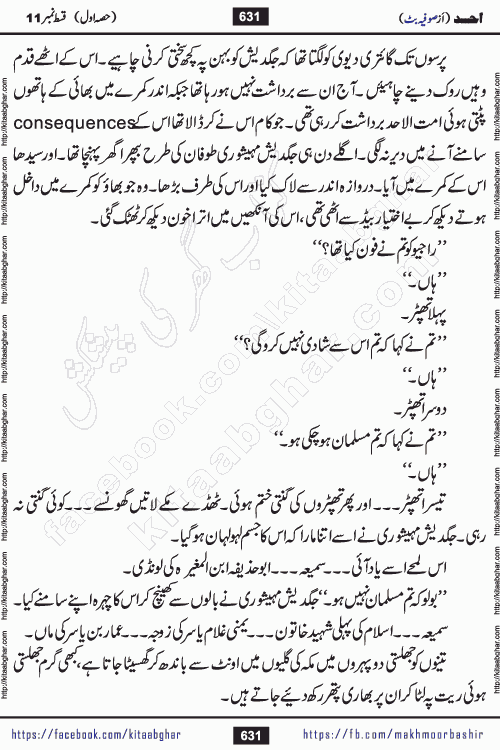 احد (از صوفیہ بٹ) 631 (حصہ اول) قسط نمبر 11
پرسوں تک گائتری دیوی کو لگتا تھا کہ جگدیش کو بہن پہ کچھ سختی کرنی چاہیے۔ اس کے اٹھے قدم
وہیں روک دینے چاہئیں۔ آج ان سے برداشت نہیں ہو رہا تھا جبکہ اندر کمرے میں بھائی کے ہاتھوں
پٹتی ہوئی امت الاحد برداشت کر رہی تھی۔ جو کام اس نے کر ڈالا تھا اس کے consequences
سامنے آنے میں دیر نہ لگی۔ اگلے دن ہی جگدیش مہیشوری طوفان کی طرح بپھرا گھر پہنچا تھا۔ اور سیدھا
اس کے کمرے میں آیا۔ دروازہ اندر سے لاک کیا اور اس کی طرف بڑھا۔ وہ جو بھاؤ کو کمرے میں داخل
ہوتے دیکھ کر بے اختیار بیڈ سے اٹھی تھی، اس کی آنکھیں میں اترا خون دیکھ کر ٹھٹک گئی۔
”راجیو کو تم نے فون کیا تھا؟“
”ہاں۔“
پہلا تھپڑ۔
”تم نے کہا کہ تم اس سے شادی نہیں کرو گی؟“
”ہاں۔“
دوسرا تھپڑ۔
”تم نے کہا کہ تم مسلمان ہو چکی ہو۔“
”ہاں۔“
تیسرا تھپڑ۔۔۔ اور پھر تھپڑوں کی گنتی ختم ہوئی۔ ٹھڈے مکے لاتیں گھونسے ۔۔۔ کوئی گنتی نہ
رہی۔ جگدیش مہیشوری نے اسے اتنا مارا کہ اس کا جسم لہولہان ہو گیا۔
اس لمحے اسے یاد آئی۔۔۔ سمیعہ۔۔۔ ابو حذیفہ ابن المغیرہ کی لونڈی۔
”بولو کہ تم مسلمان نہیں ہو۔“ جگدیش مہیشوری نے بالوں سے کھینچ کر اس کا چہرہ اپنے سامنے کیا۔
سمیعہ۔۔۔ اسلام کی پہلی شہید خاتون۔۔۔ یمنی غلام یاسر کی زوجہ۔۔۔ عمار بن یاسر کی ماں۔
تینوں کو جھلستی دوپہروں میں مکہ کی گلیوں میں اونٹ سے باندھ کر گھسیٹا جاتا ہے، کبھی گرم جھلستی
ہوئی ریت پہ لٹا کر ان پر بھاری پتھر رکھ دیئے جاتے ہیں۔
https://facebook.com/kitaabghar 631 https://fb.com/makhmoorbashir
http://kitaabghar.com
کتاب گھر کی پیشکش
facebook.com/kitaabghar
kitaabghar.com